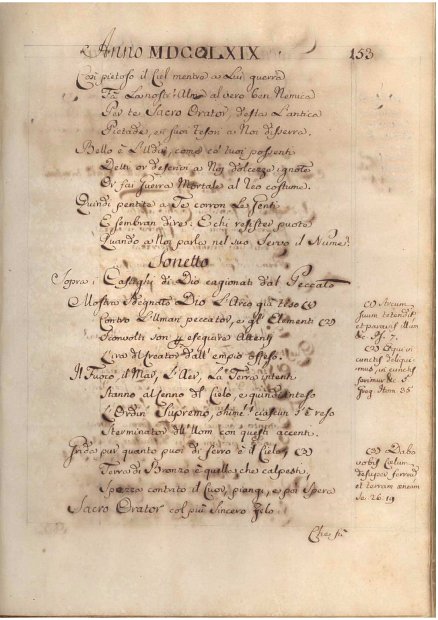 Anno MDCCLXIX 153
Così pietoso il Ciel mentre a Lui guerra
Fa La nostr'Alma al vero ben Nemica
Per te Sacro Orator, desta L'antica
Pietade, e i suoi Tesori a Noi disserra.
Bello è L'udir, come co' tuoi possenti
Detti or descrivi a Noi dolcezze ignote
Or fai Guerra Mortale al Reo costume.
Quindi pentite a Te corron Le Genti
E sembran dire: E chi resister puote
Quando a Noi parla nel suo Servo il Nume?
Sonetto
Sopra i Castighi di Dio cagionati dal Peccato
Mostra Sdegnato Dio L'Arco già teso (1)
Contro L'Uman peccator, e gl'Elementi (2)
Sconvolti son, y eseguire Attenti
L'ira del Creator dall'empio offeso.
Il Fuoco, il Mar, L'Aer, La Terra intenti
Stanno al cenno del Cielo, e quindi inteso
L'Ordin Supremo, ohime! ciascun s'è reso
Sterminator dell'Uom con questi accenti.
Grida pur quanto puoi di ferro è il Cielo, (3)
Terra di Bronzo è quella, che calpesti,
Spezza contrito il Cuor, piangi, e poi Spera
Sacro Orator col più Sincero Zelo
(1) Arcum
suum tetendit,
et paravit illum
Ps. 7.
(2) Qui in
cunctis deliqui-
mus, in cunctis
ferimur
Greg. Hom 35
(3) Dabo
vobis Cœlum
desuper ferreum
et terram æneam
26. 19